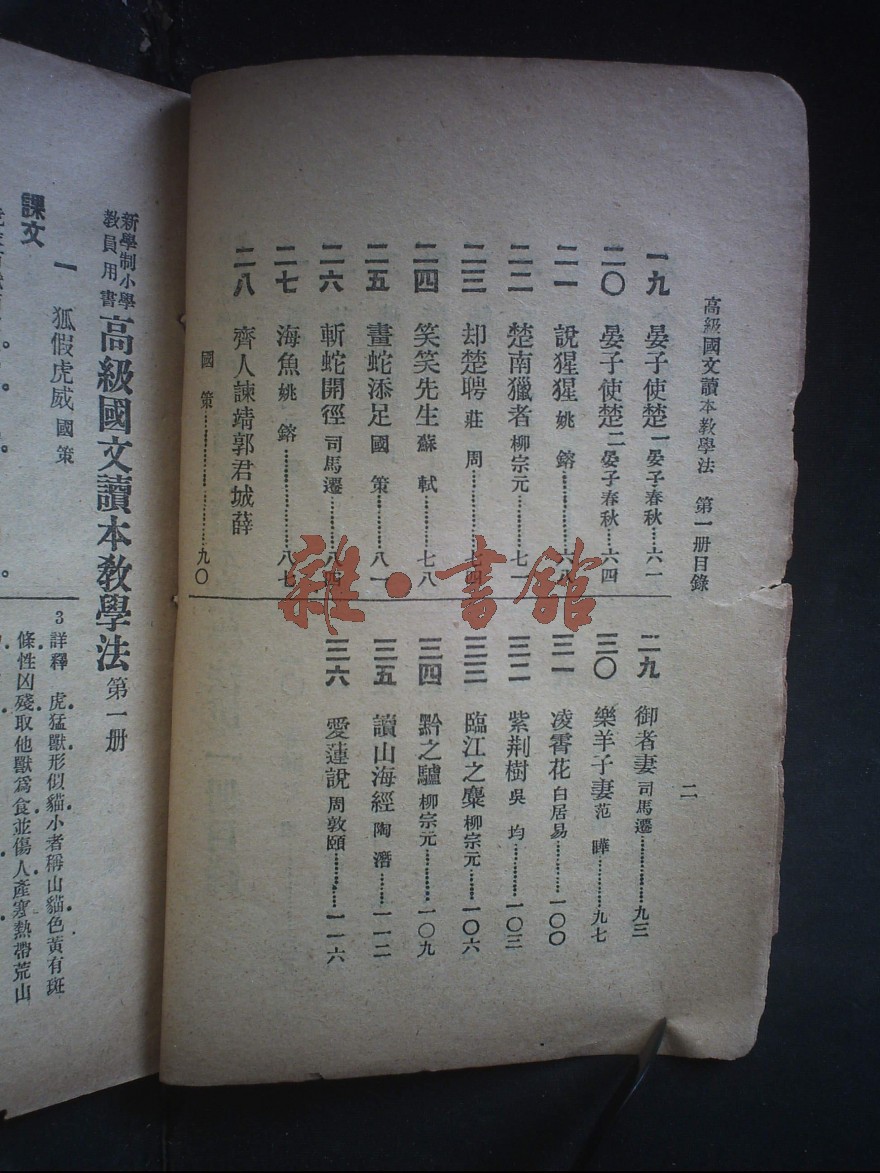 高級國文讀本教學法 第一册目錄
一九 晏子使楚一 晏子春秋……六一
二〇 晏子使楚二 晏子春秋……六四
二一 說猩猩 姚鎔……六八
二二 楚南獵者 柳宗元……七一
二三 却楚聘 莊周……七四
二四 笑笑先生 蘇軾……七八
二五 畫蛇添足 國策……八一
二六 斬蛇開徑 司馬遷……八四
二七 海魚 姚鎔……八七
二八 齊人諫靖郭君城薛
國策……九〇
二
二九 御者妻 司馬遷……九三
三〇 樂羊子妻 范曄……九七
三一 凌霄花 白居易……一〇〇
三二 紫荆樹 吳均……一〇三
三三 臨江之麋 柳宗元……一〇六
三四 黔之驢 柳宗元……一〇九
三五 讀山海經 陶潛……一一二
三六 愛蓮說 周敦頤……一一六
雜·書館
新學制小學
教員用書
高級國文讀本教學法 第一册
一 狐假虎威 國策
課文
3 詳釋 虎猛獸形似貓小者稱山貓色黃有斑
條性凶殘取他獸爲食並傷人產寒熱帶荒山